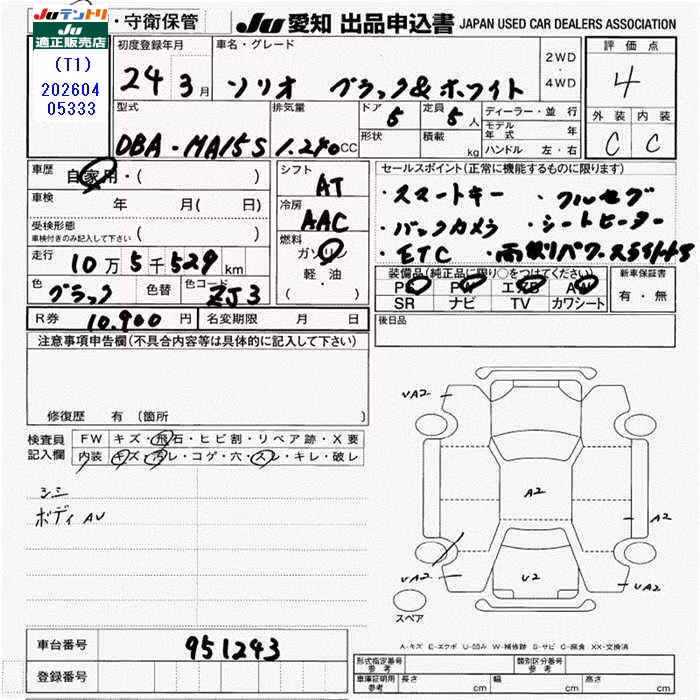 JUテントリ
適正販売店
(T1)
202604
05333
・守衛保管
JU 愛知 出品申込書 JAPAN USED CAR DEALERS ASSOCIATION
初度登録年月 24 3月
車名・グレード ソリオ ブラック&ホワイト
2WD・4WD
評価点 4
外装 内装
C C
型式 DBA・MA15S
排気量 1.240CC
ドア 5
定員 5人
形状
積載 kg
ディーラー・並行
モデル年式 年
ハンドル 左・右
車歴 自家用・( )
車検 年 月( 日)
受検形態
車検付きのみ記入して下さい ( )
走行 10万5千529km
色 ブラック 色替 色コード ZJ3
シフト AT
冷房 AAC
燃料
ガソリン
軽・油
( ・ )
セールスポイント(正常に機能するものに限ります)
・スマートキー ・フルセグ
・バックカメラ ・シートヒーター
・ETC ・両側パワースライドドア
装備品(純正品に限り○をつけてください)
PS PW エアB AW
SR ナビ TV カワシート
新車保証書
有・無
R券 10,900円 名変期限 月 日
後日品
注意事項申告欄(不具合内容等は具体的に記入して下さい)
修復歴 有(箇所 )
検査員記入欄
FW キズ・飛石・ヒビ割・リペア跡・X要
内装 キズ・汚レ・コゲ・穴・スレ・キレ・破レ
シミ
ボディ AU
UA2
A2
A2
UA2
U2
UA2
スペア
A-キズ E-エクボ U-凹み W-補修跡 S-サビ C-腐食 XX-交換済
車台番号 951243
登録番号
形式指定番号 参考
類別区分番号 参考
車庫証明用 参考 長さ cm 幅 cm 高さ cm